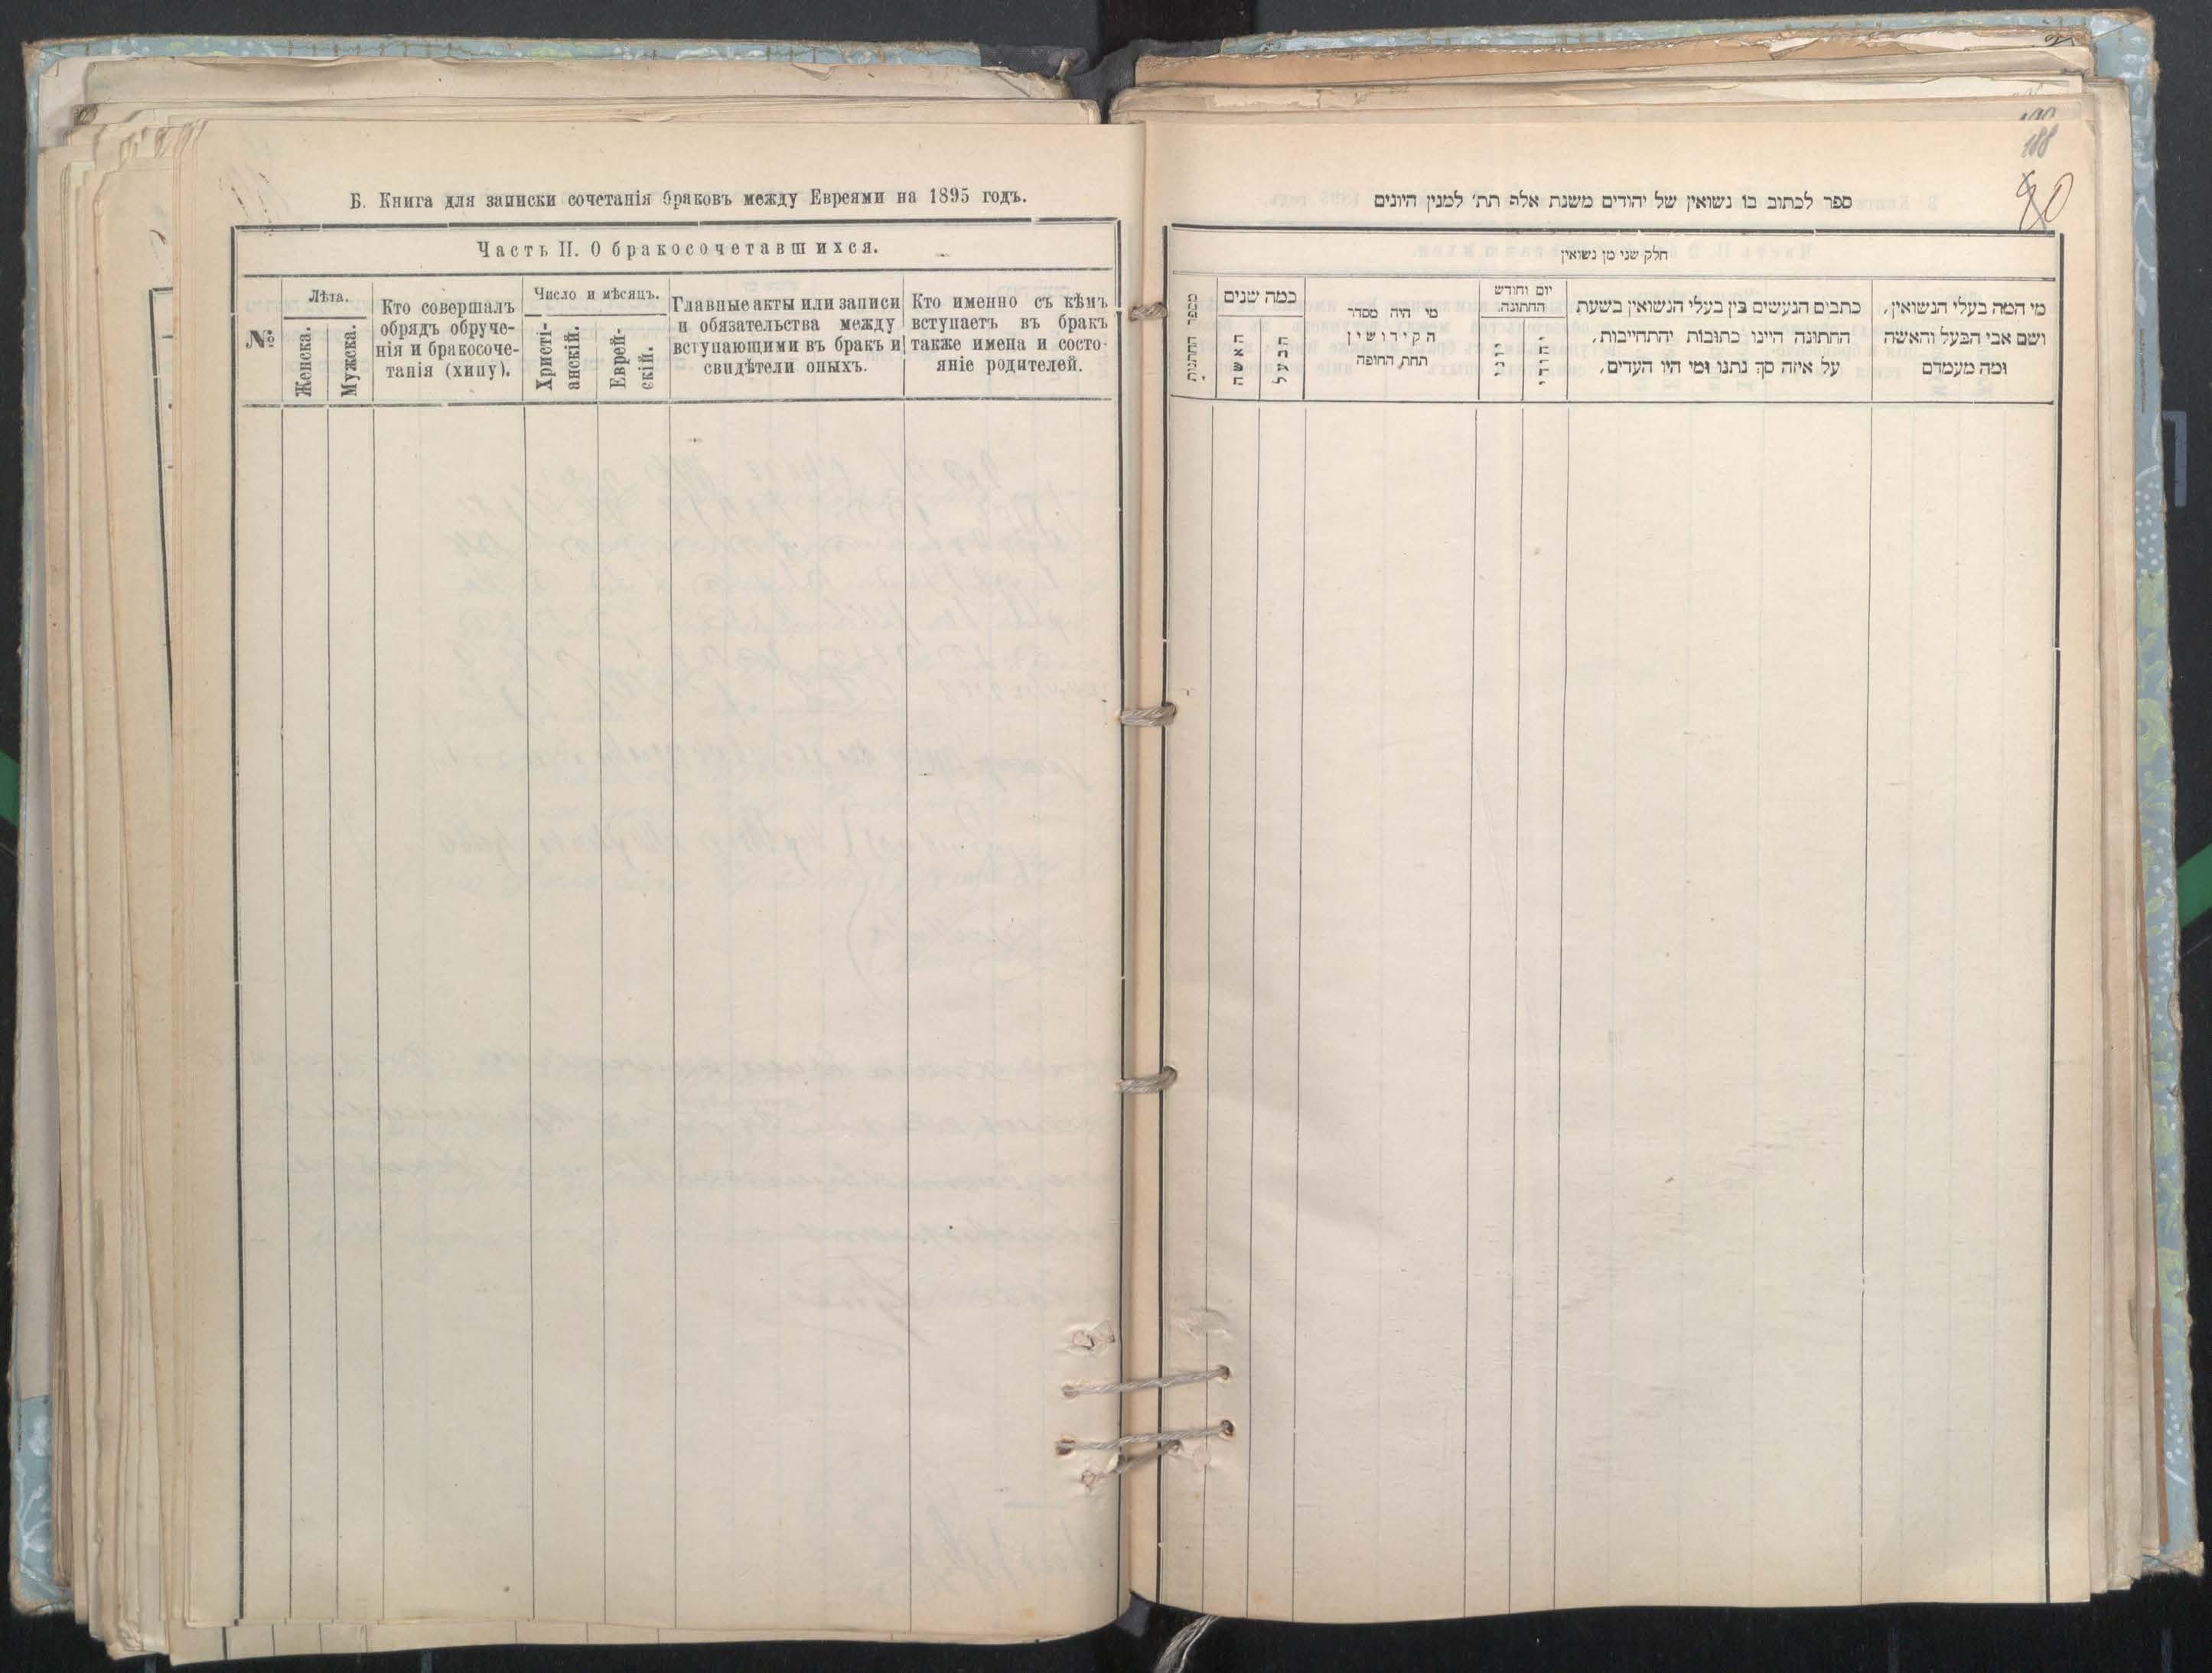 Б. Книга для записки сочетанія браковъ между Евреями на 1895 годъ.
Часть II. О бракосочетавшихся.
№
Лѣта.
Женска.
Мужска.
Кто совершалъ
обрядъ обруче-
нія и бракосоче-
танія (хипу).
Число и мѣсяцъ.
Христі-
анскій.
Еврей-
скій.
Главные акты или записи
и обязательства между
вступающими въ бракъ и
свидѣтели опыхъ.
Кто именно съ кѣмъ
вступаетъ въ бракъ
также имена и состо-
яніе родителей.
188
80
ספר לכתוב בו נשואין של יהודים משנת אלף תת׳ למנין היונים
חלק שני מן נשואין
מי המה בעלי הנשואין,
ושם אבי הבעל והאשה
ומה מעמדם
כתבים הנעשים בין בעלי הנשואין בשעת
החתונה היינו כתובות יהתחייבות,
על איזה סך נתנו ומי היו העדים,
יום וחודש
החתונה
יהודי
יוני
מי היה מסדר
הקידושין
תחת החופה
כמה שנים
הבעל
האשה
מספר החתנות